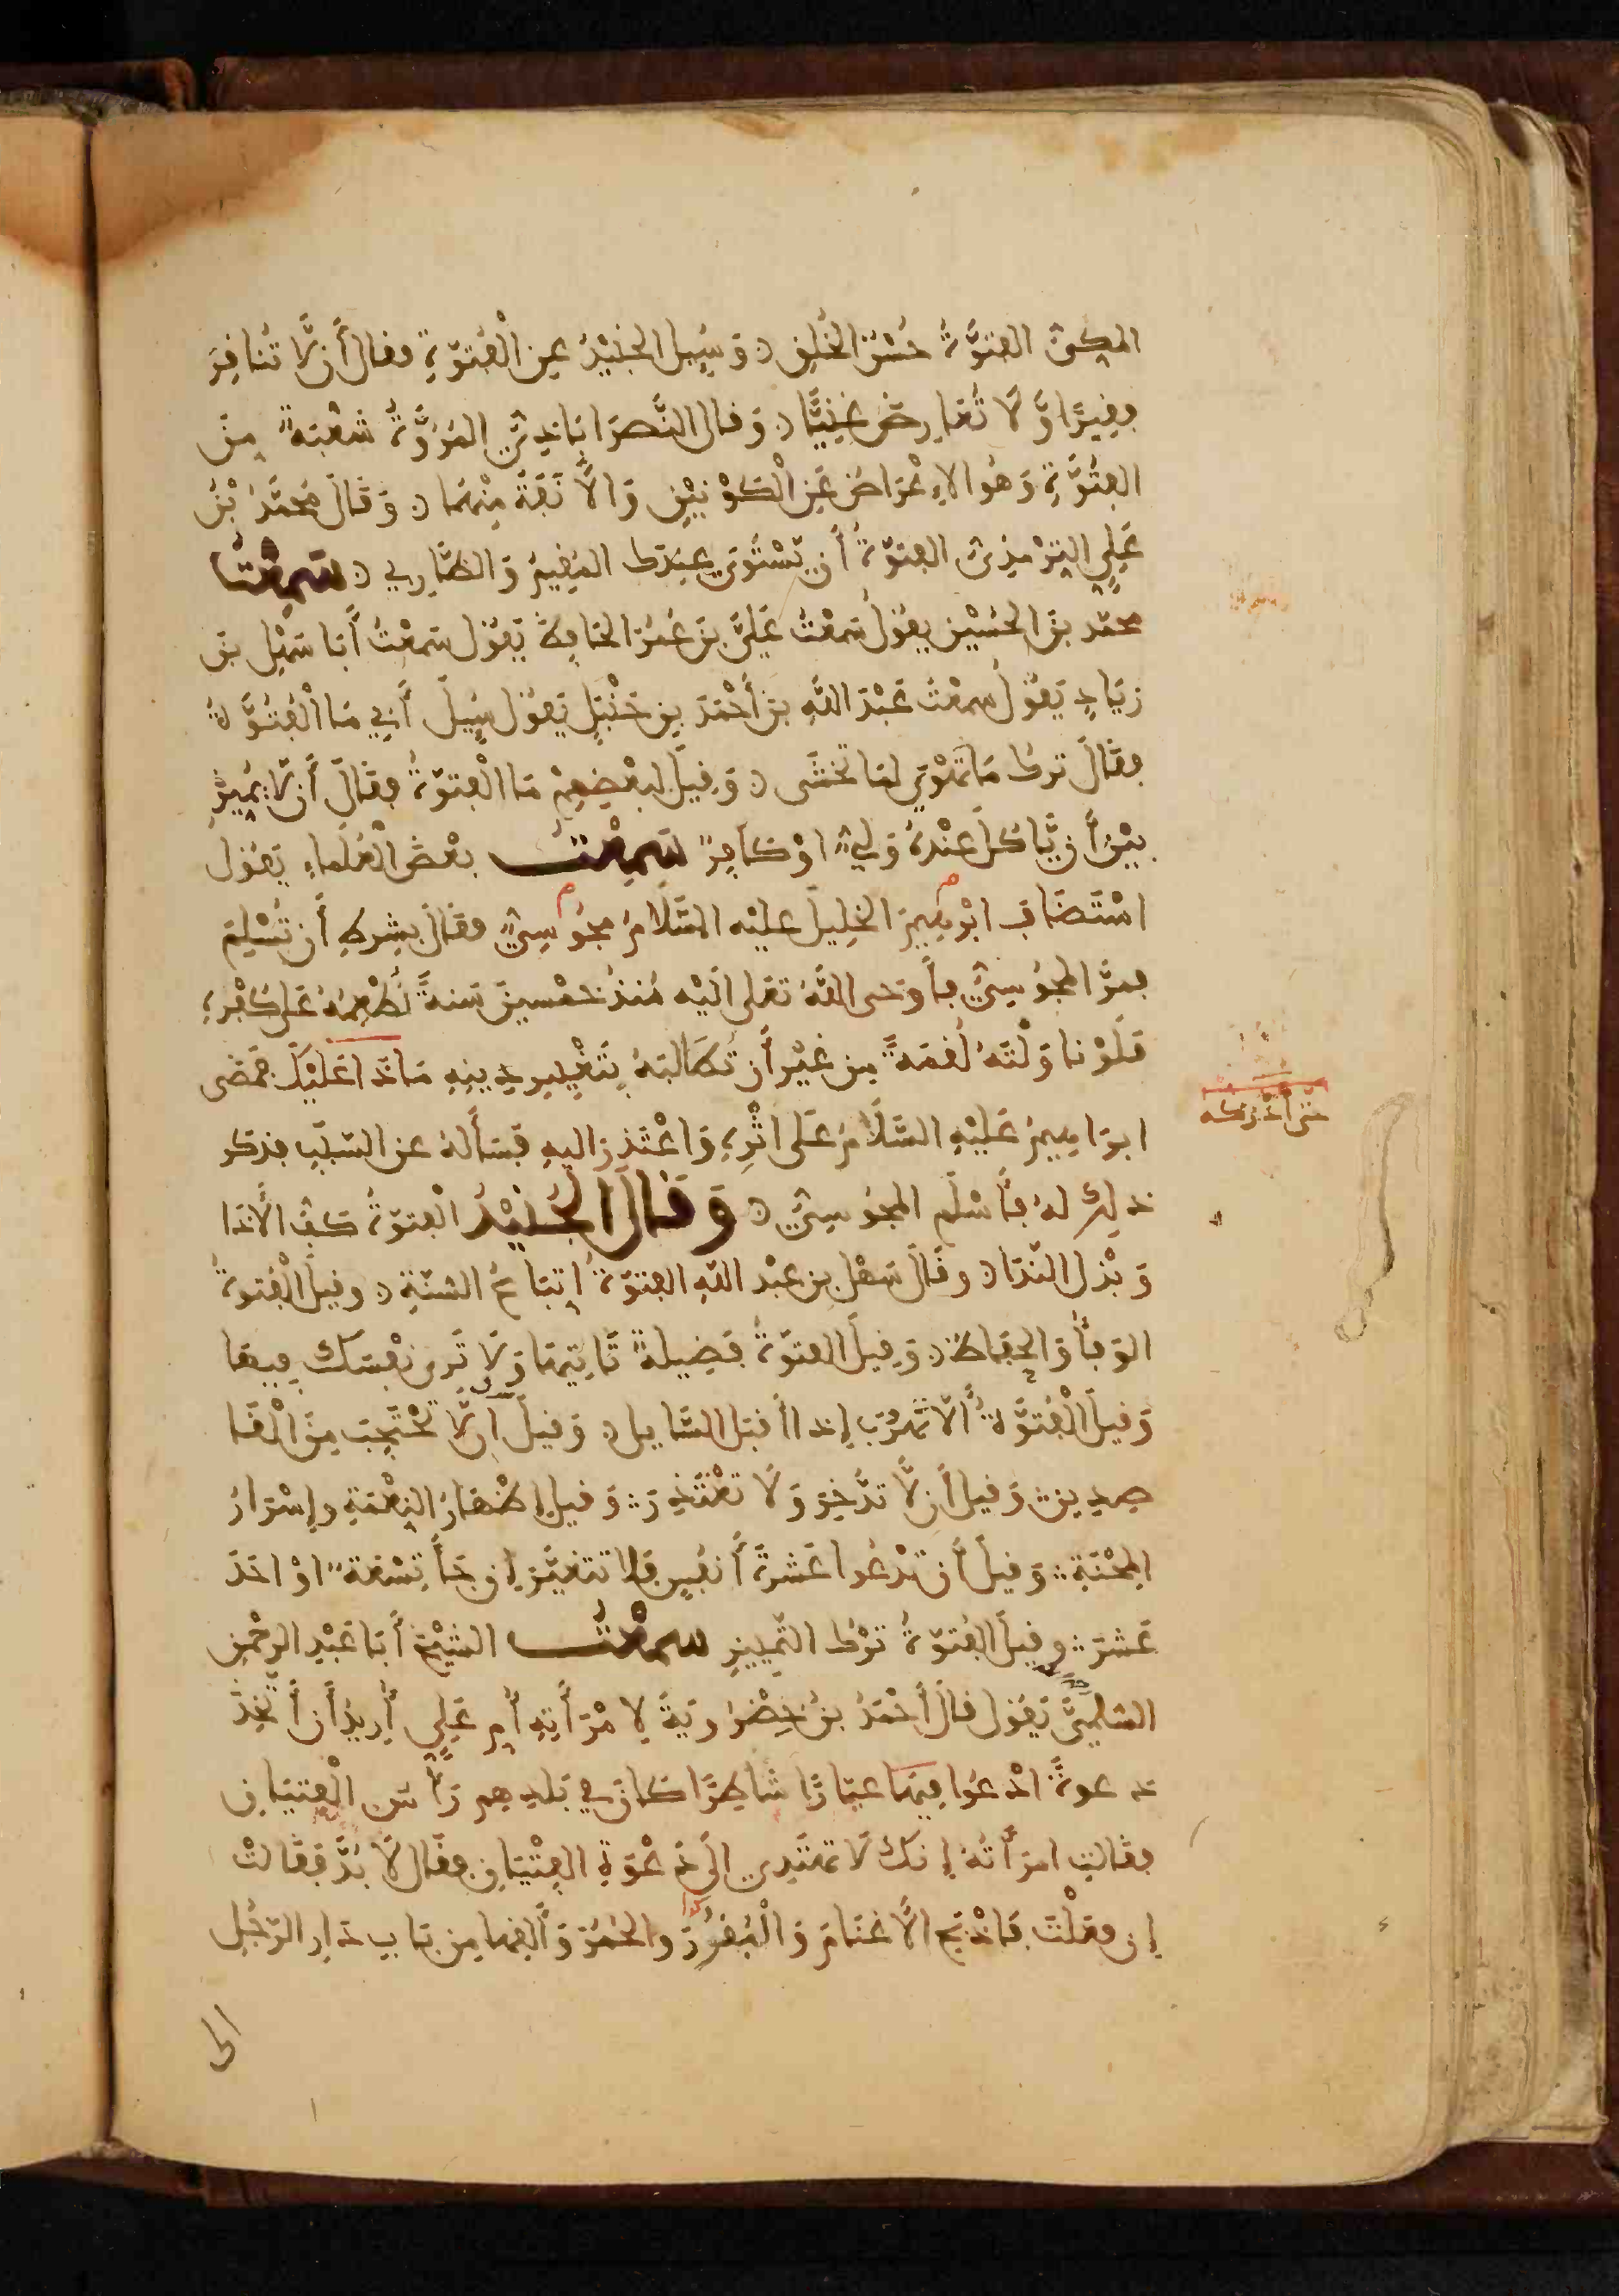 المكي الفتوّة حُسْن الخُلق وَسُئِل الجُنَيْدُ عن الْفُتوّةِ فقال أن لّا تُنافِرَ
فقِيرًا وَّلَا تُعَارِضَ غَنِيًّا وَقال النَّصرَابَاذِيّ المرُوَّةُ شُعْبَةٌ مِنَ
الفُتُوَّةِ وَهُوَ الاِعْرَاضُ عَنِ الْكَوْنَيْنِ وَالأنَفَةُ مِنْهُمَا وَقَالَ مُحمَّدُ بْنُ
عَلِيٍ التِرْمِذِيّ الفتوّةُ أن يّسْتَوِيَ عِنْدَكَ المُقِيمُ وَالطَّارِي سَمِعْتُ
محمّد بنَ الحُسَيْن يقُولُ سَمعْتُ عَلِيَّ بنَ عُمَرَ الحَافِظَ يَقُول سَمعْتُ أبَا سَهْلِ بنَ
زِيَادٍ يَقُولُ سمعْتُ عَبْدَ اللّهِ بنَ أَحْمَدَ بنِ حَنْبَلٍ يَقُول سُئِلَ أَبِي مَا الْفُتُوَّةُ
فقَالَ ترك مَا تَهْوَى لمَا تخْشَى وَقِيلَ لبعْضِهِمْ مَا الْفُتوّةُ فقَالَ أَن لّا يُميِّزَ
بيْنَ أن يَّاكلَ عِنْدهُ وَلِيٌّ اوْ كَافِرٌ سَمِعْت بعْضَ الْعُلَمَاءِ يَقُول
اسْتَضَافَ ابْرهِيمَ الخلِيلَ عليْه السَّلَامُ مجُوسِيٌّ فقَالَ بشرطِ أن تُسْلِمَ
فمَرَّ المجُوسِيُّ فأَوْحى اللّهُ تعَلى اليْه مُنذُ خمْسينَ سَنةً نُطْعِمُهُ عَلى كُفْرِهِ
فَلَوْ نَاوَلْتَهُ لُقمَةً مِن غَيْرِ أن تُطَالبَهُ بتَغْيِيرِ دِينِهِ مَاذَا عَلَيْكَ فمَضَى
حَتى أدْرَكه
ابرَاهِيمُ عَلَيْهِ السَّلَامُ عَلى اثْرِهِ وَاعْتَذرَ اليهِ فَسَأَلهُ عن السّبَبِ فذكر
ذلك لهُ فأَسْلَم المجُوسِيّ وَقَالَ الجُنَيْدُ الْفتوّةُ كَفّ الأذَا
وَبذْل النّدَا وقَالَ سَهْل بن عبْد اللّهِ الفتوّةُ اتِبَاعُ السُّنّةِ وقيلَ الْفُتوةُ
الوَفأُ وَالحِفَاظُ وَقِيلَ الفتوّةُ فَضِيلةٌ تَاتِيهَا وَلَا تَرى نفْسَك فيهَا
وَقيلَ الْفُتوَّةُ ألّا تهْرُبَ إذا أقبَل السَّايِل وَقيلَ أن لَّا تَحْتَجِبَ مِنَ الْقَا
صِدِينَ وَقيلَ أن لَّا تدَّخِرَ وَلَا تعْتَذِرَ وَقيل إظْهَارُ النِعْمَةِ وإسْرَارُ
المِحْنَةِ وَقيلَ أن تدْعُوا عَشَرةَ أنفُسٍ فَلا تتغيَّرَ إن جَأَ تِسْعَةٌ اوْ احَدَ
عَشَرَ وقيلَ الفُتوّةُ ترْكُ التّمْيِيزِ سمعْتُ الشيْخَ أبَا عَبْدِ الرحْمن
السُّلَمِيَّ يَقُول قالَ أَحْمَدُ بنُ خِضْرَويَةَ لِامْرَأَتِهِ أُمِ عَلِيٍ أُرِيدُ أن أتَّخِذَ
دعوةً ادْعُوا فيهَا عيَارًا شَاطِرًا كَانَ في بَلدِهِم رَأسَ الْفِتيَانِ
فقَالت امرَأتُهُ إنك لَا تهتَدِي الَى دَعْوَةِ الفِتْيَانِ فقَال لَا بُدَّ فَقَالتْ
إن فعَلْتَ فَاذْبَحِ الأغنَامَ وَالْبقُورَ والحُمُرَ وَألقِهَا مِن بَابِ دَارِ الرّجُلِ
الى